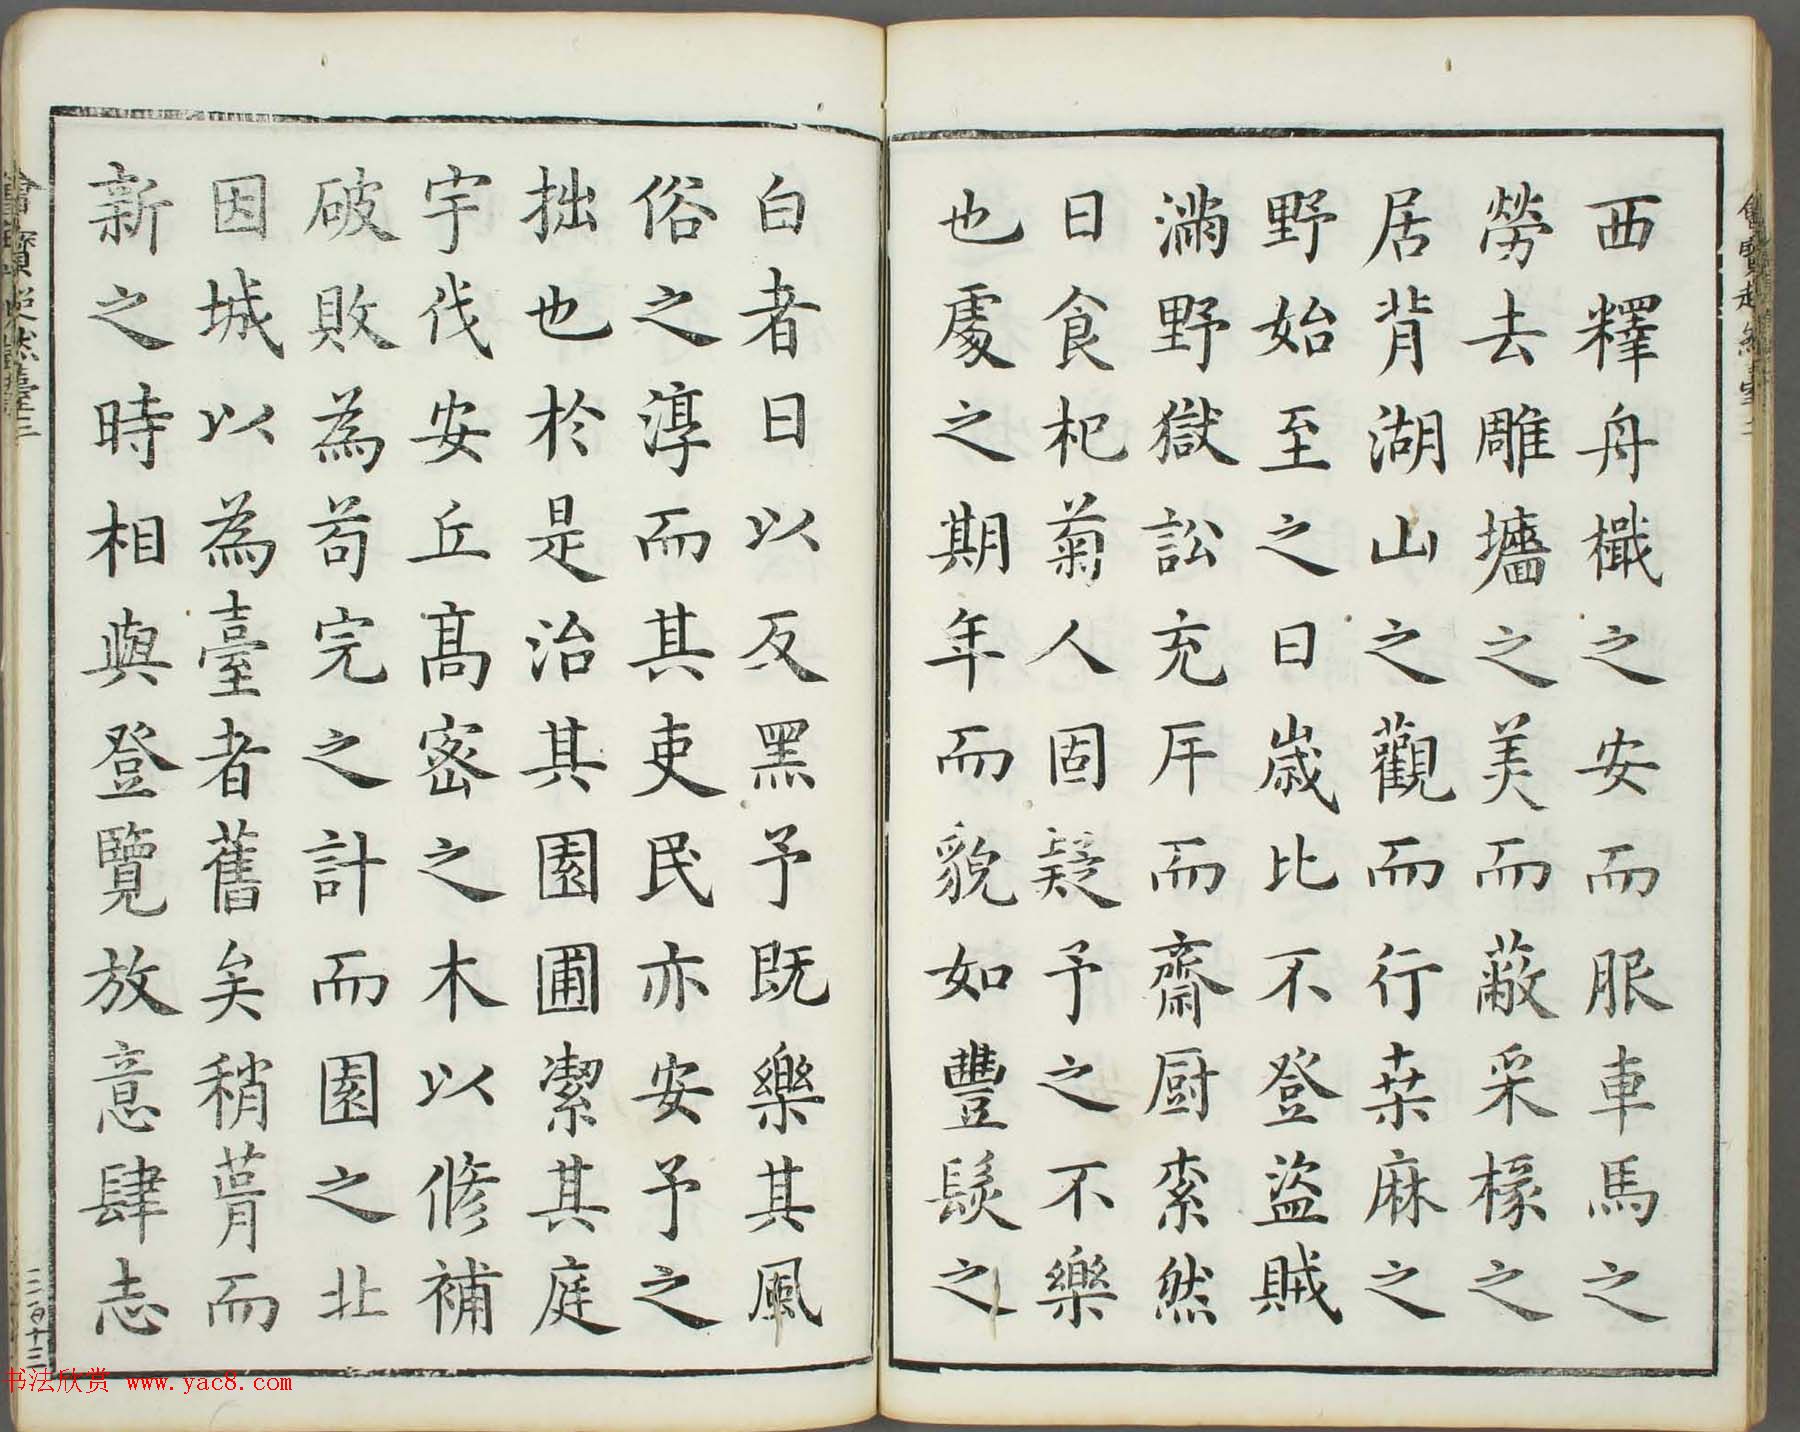 西釋舟檝之安而服車馬之
勞去雕墻之美而蔽采椽之
居背湖山之觀而行桒麻之
野始至之日歲比不登盜賊
滿野獄訟充斥而齋厨索然
日食杞菊人固疑予之不樂
也處之期年而貌如豐髮之
白者日以反黑予既樂其風
俗之淳而其吏民亦安予之
拙也於是治其園圃潔其庭
宇伐安丘高密之木以修補
破敗為苟完之計而園之北
因城以為臺者舊矣稍葺而
新之時相與登覽放意肆志
三百十三
书法欣赏 www.yac8.com